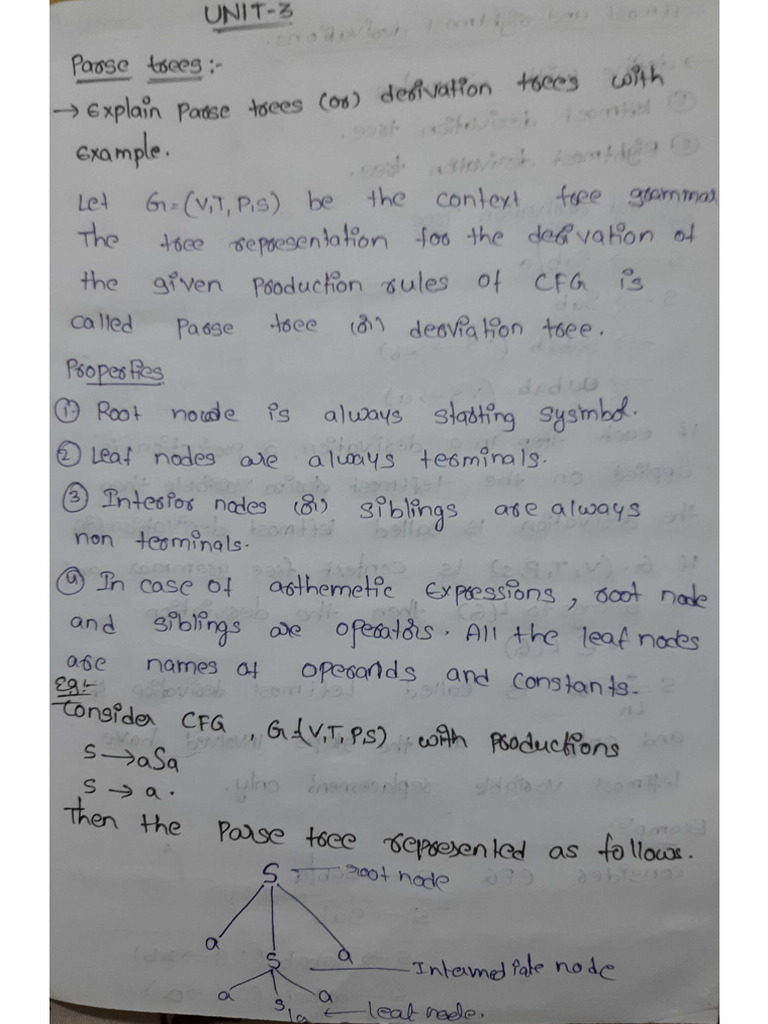 UNIT-3
Parse trees:-
→ Explain Parse trees (or) derivation trees with
Example.
Let G=(V,T,P,S) be the context free grammar
The tree representation for the derivation of
the given Production rules of CFG is
called Parse tree (or) derviation tree.
Properties
① Root node is always starting sysmbol.
② Leaf nodes are always terminals.
③ Interior nodes (or) siblings are always
non terminals.
④ In case of arthemetic Expressions, root node
and siblings are operators. All the leaf nodes
are names of operands and constants.
Eg:-
Consider CFG, G=(V,T,P,S) with Productions
S → aSa
S → a.
Then the Parse tree represented as follows.
S root node
a S a Intermediate node
a S a leaf node.
a